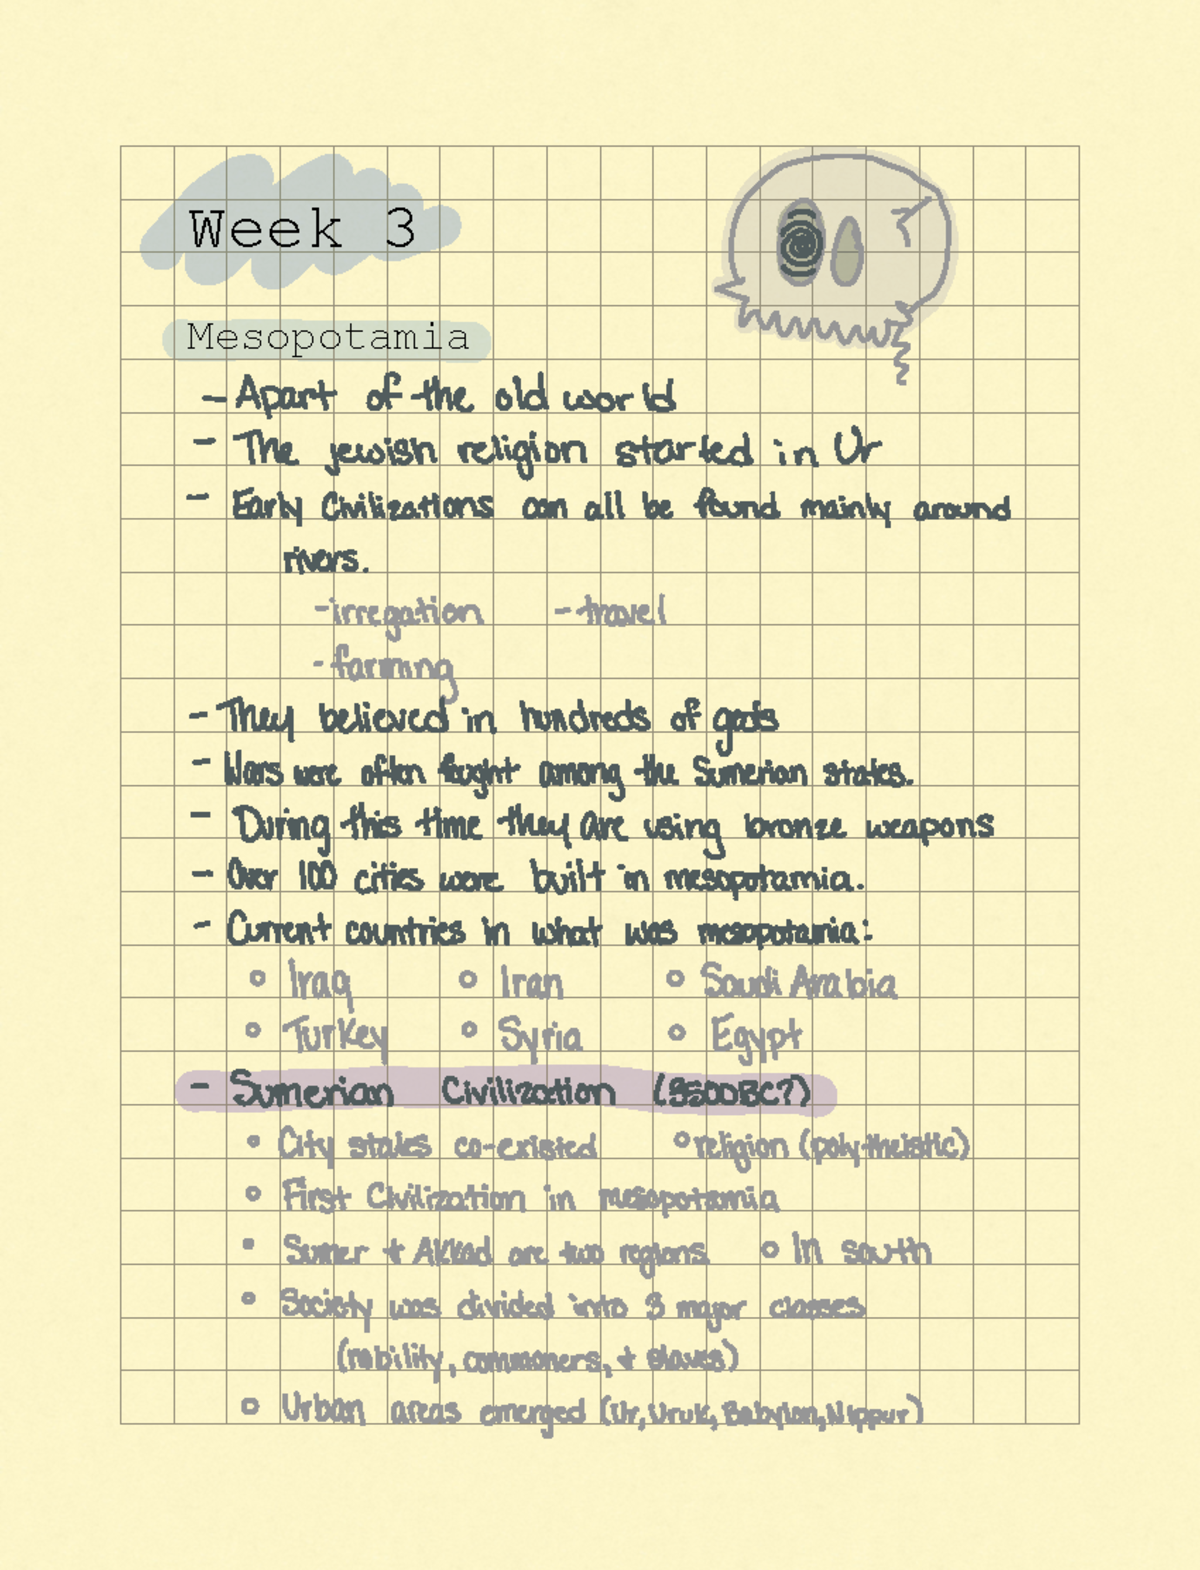 Week 3
Mesopotamia
- Apart of the old world
- The jewish religion started in Ur
- Early Civilizations can all be found mainly around
rivers.
-irregation -travel
-farming
- They believed in hundreds of gods
- Wars were often fought among the Sumerian states.
- During this time they are using bronze weapons
- Over 100 cities were built in mesopotamia.
- Current countries in what was mesopotamia:
° Iraq ° Iran ° Saudi Arabia
° Turkey ° Syria ° Egypt
- Sumerian Civilization (3500BC?)
° City states co-existed ° religion (polytheistic)
° First Civilization in mesopotamia
° Sumer + Akkad are two regions ° In south
° Society was divided into 3 major classes
(nobility, commoners, + slaves)
° Urban areas emerged (Ur, Uruk, Babylon, Nippur)